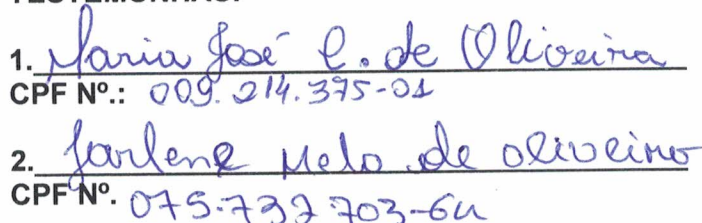 TESTEMUNHAS:
1. Maria José C. de Oliveira
CPF Nº.: 009.214.375-01
2. Jarlene Melo de oliveira
CPF Nº. 075.732703-64